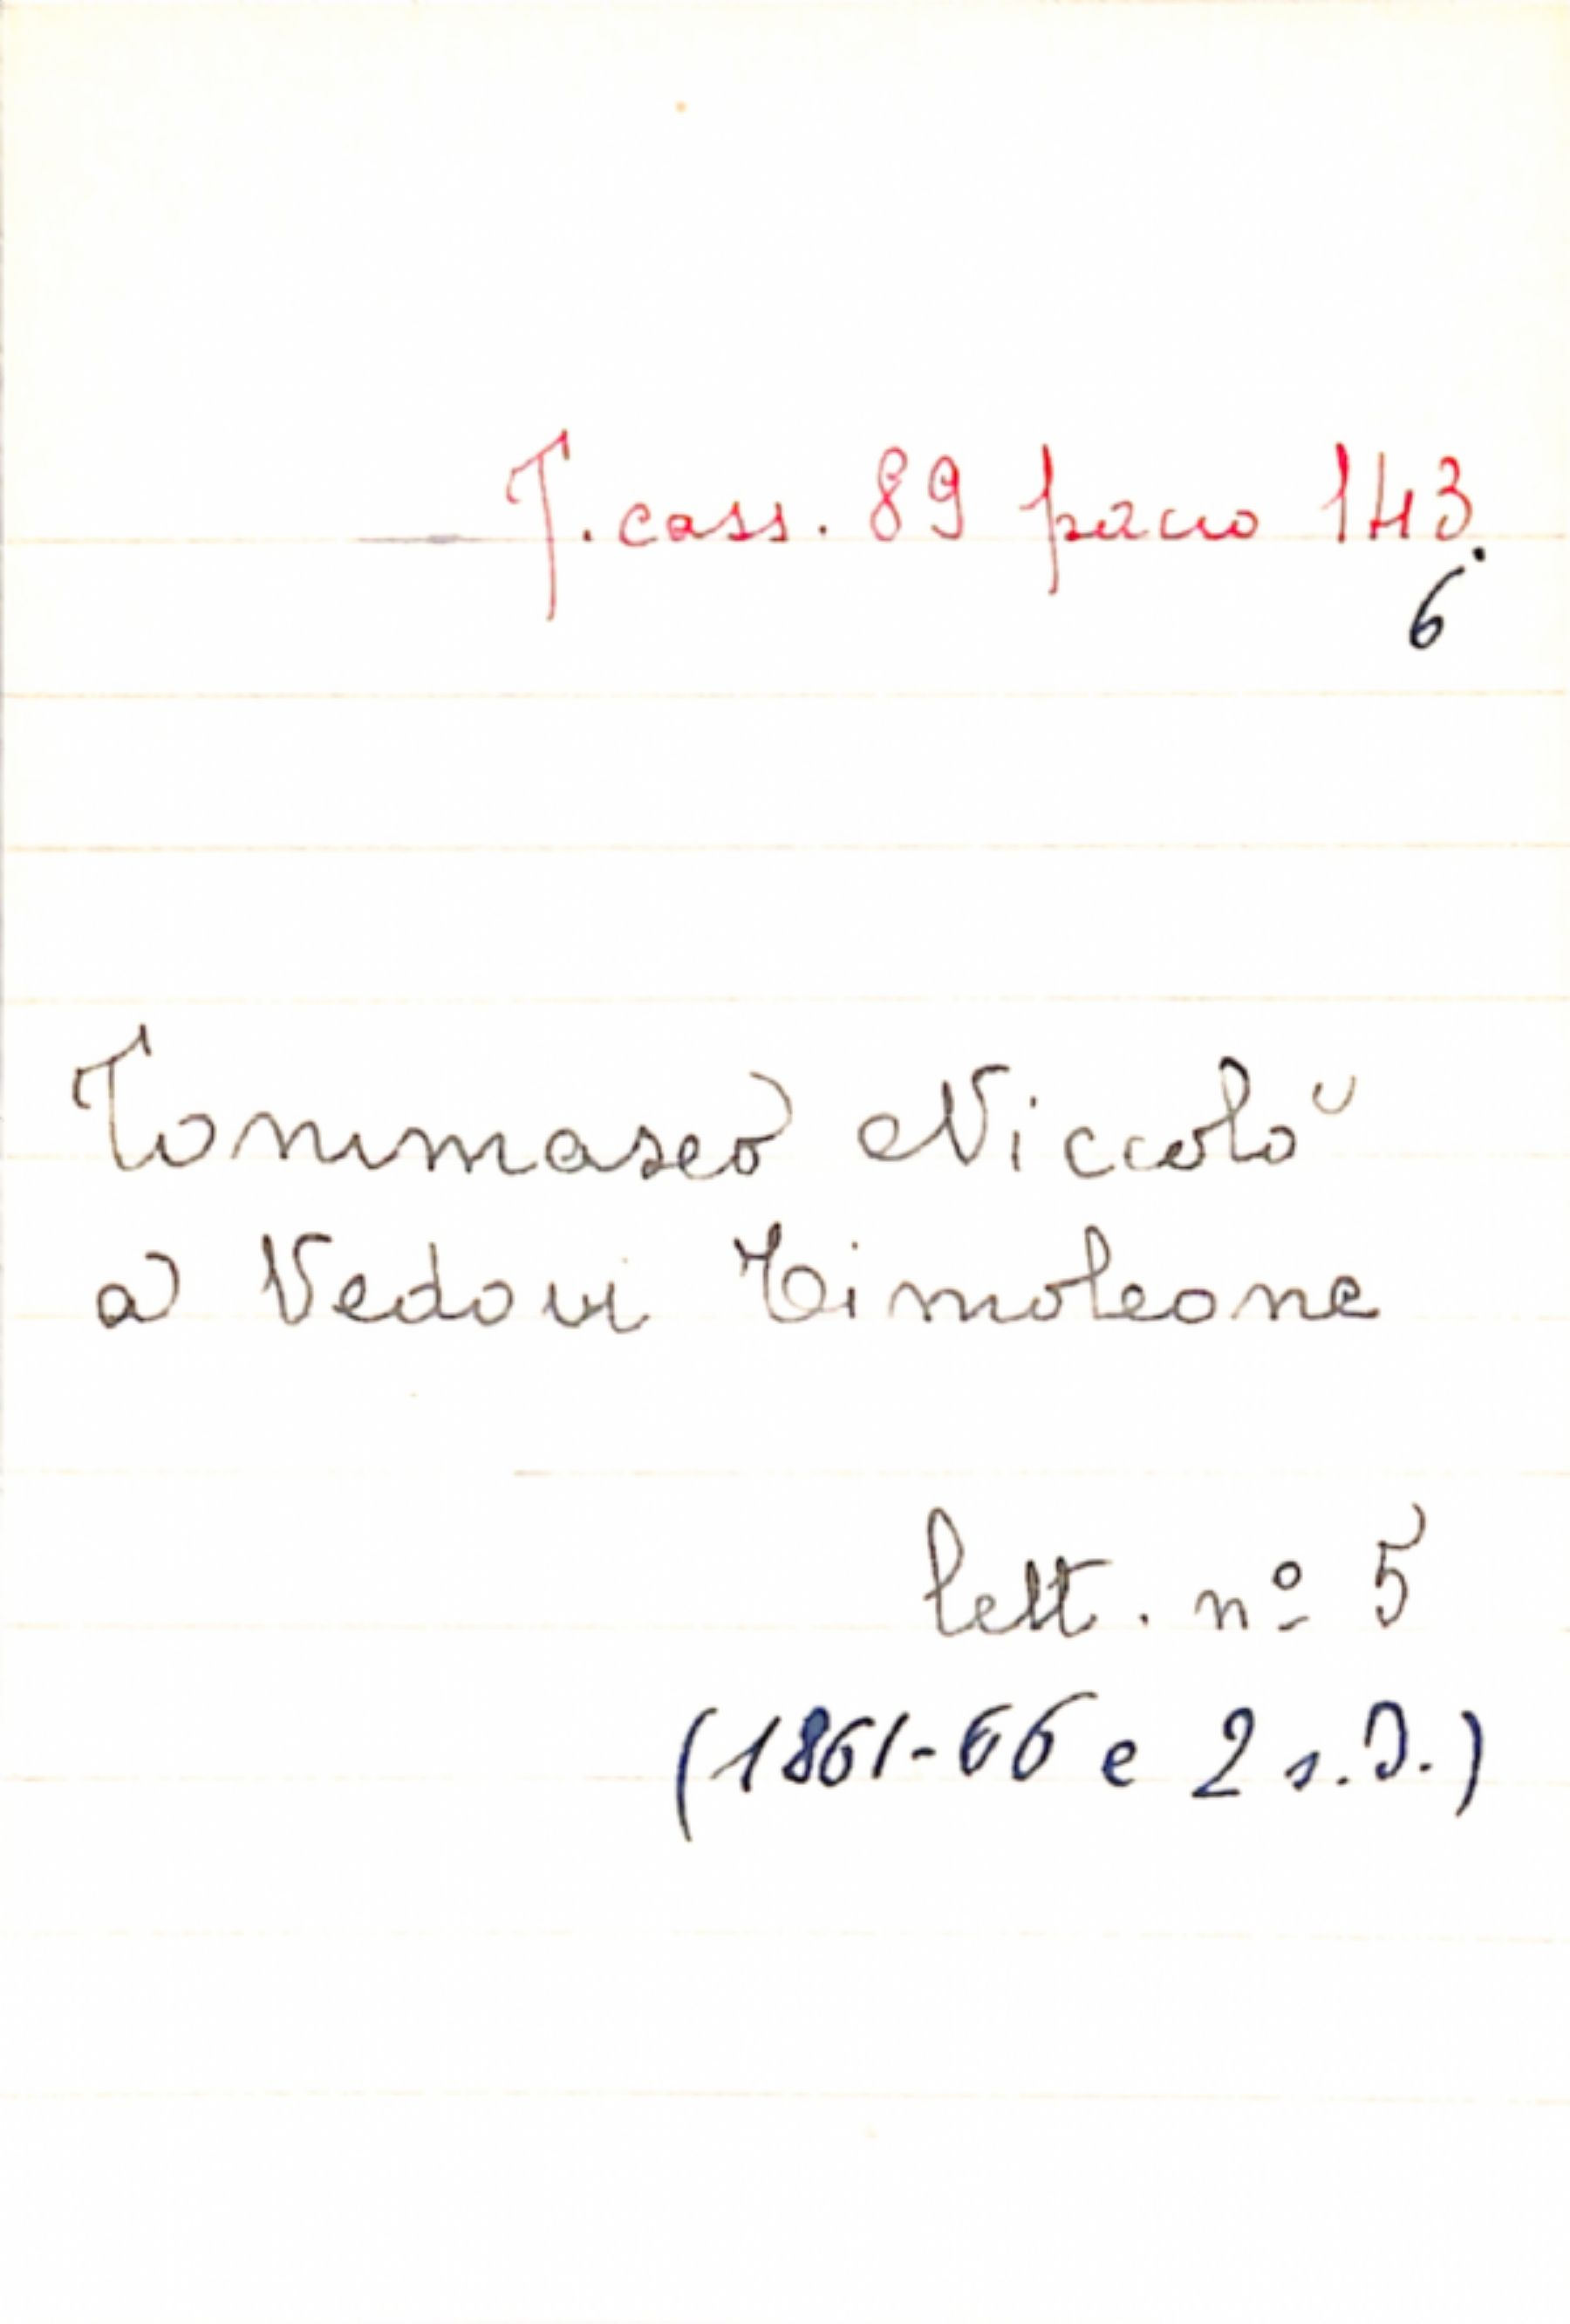 T. cass. 89 pacco 143.
6
Tommaseo Niccolò
a Vedovi Timoleone
lett. nº 5
(1861-66 e 2 s.D.)